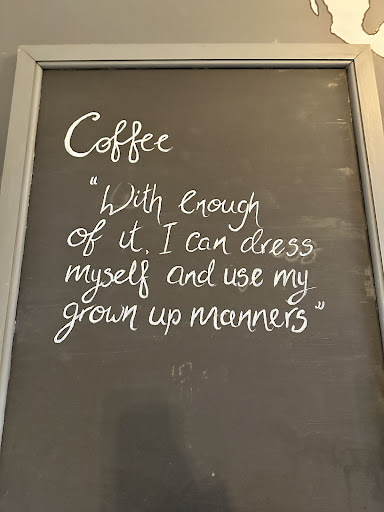 Coffee
"With enough
of it, I can dress
myself and use my
grown up manners"